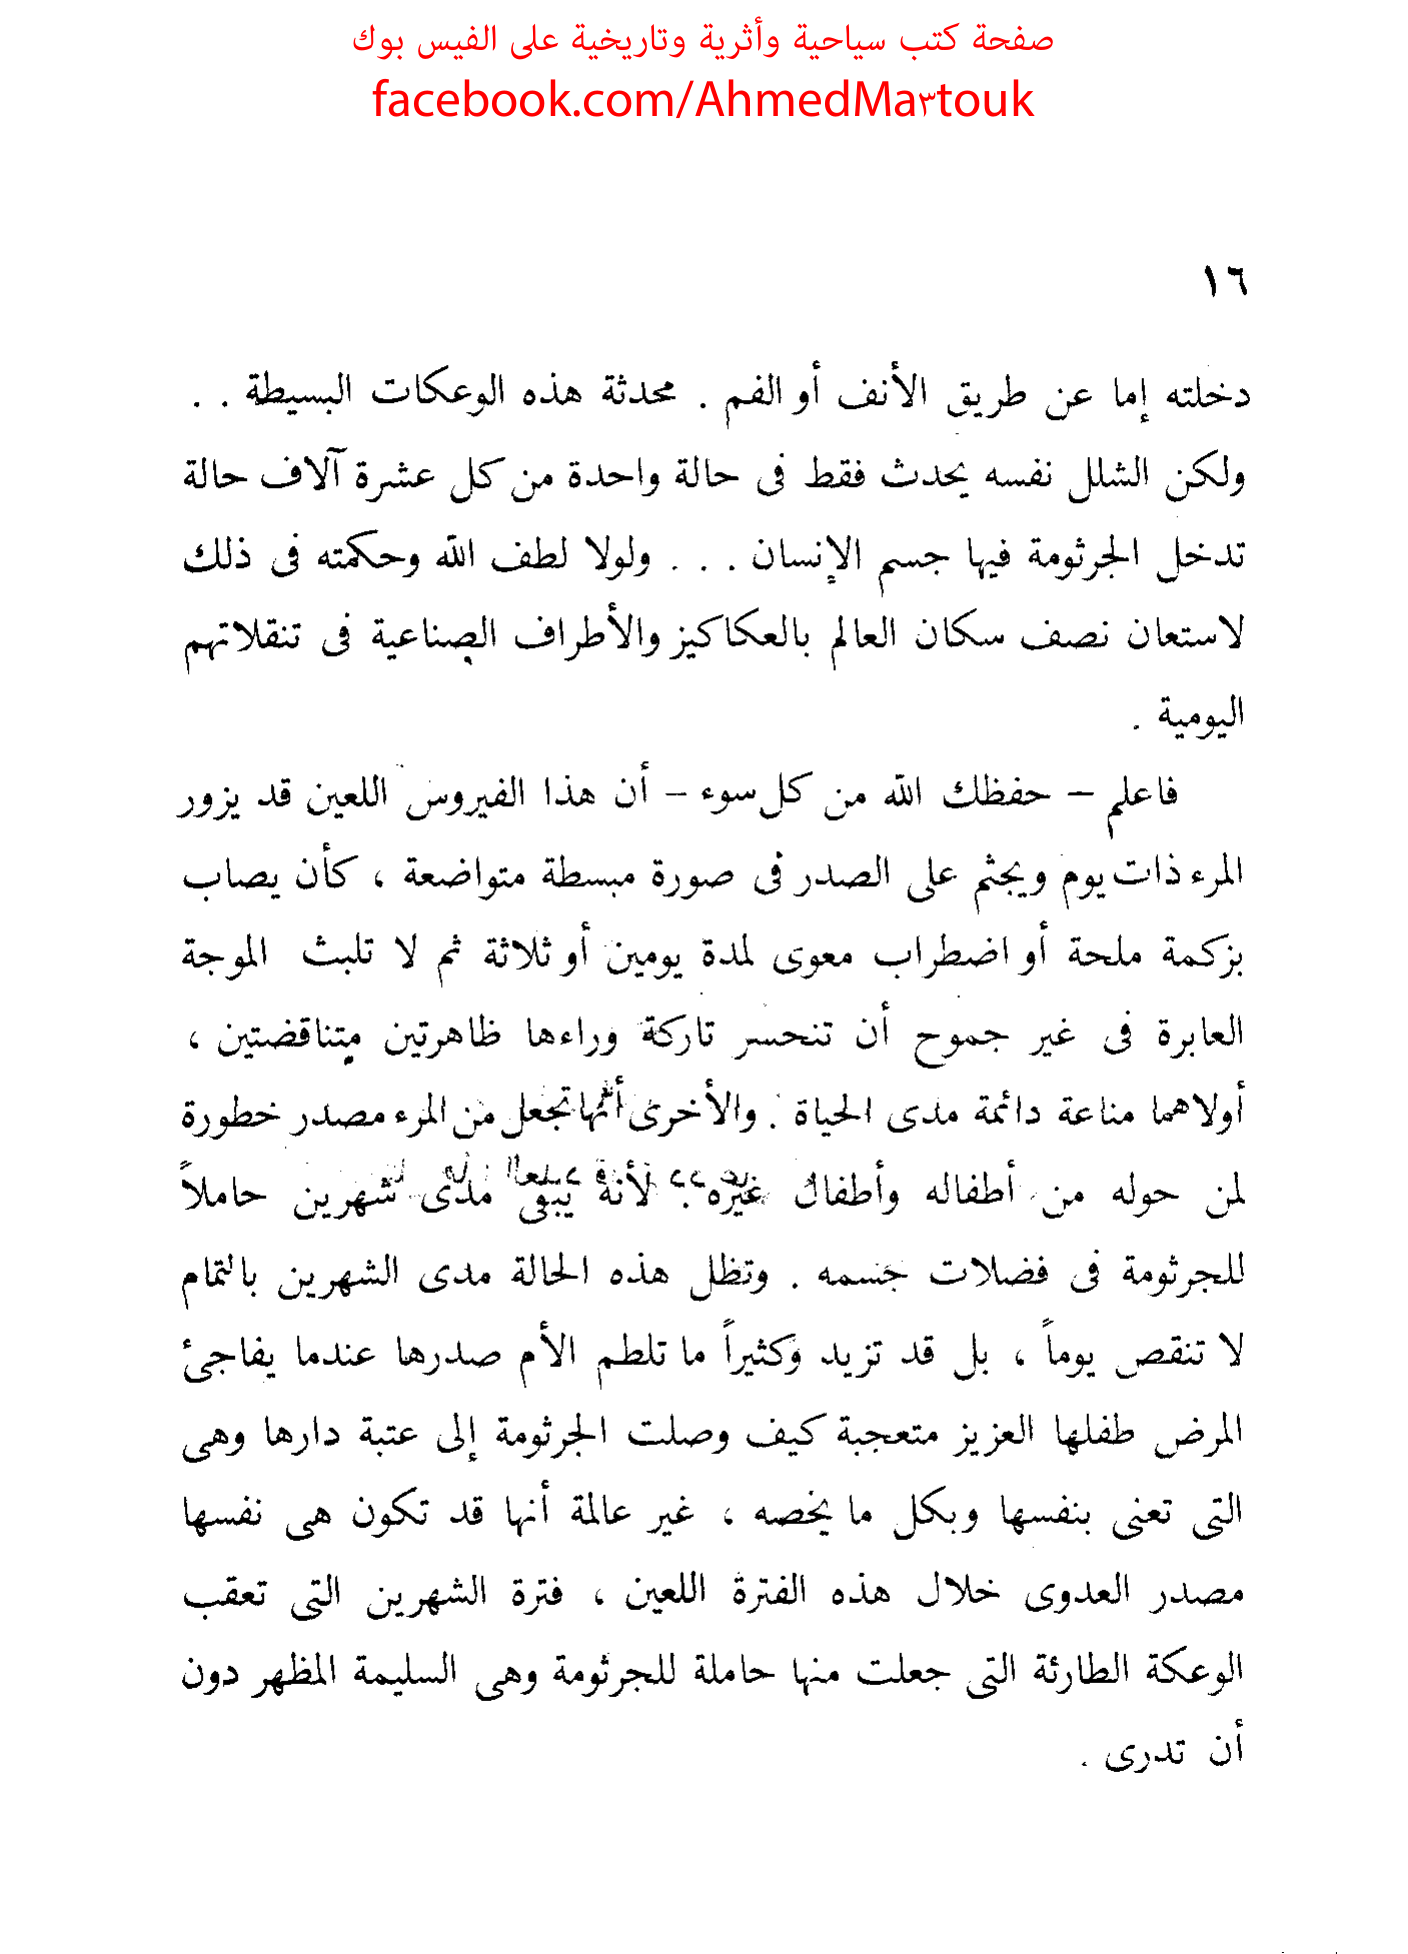 صفحة كتب سياحية وأثرية وتاريخية على الفيس بوك
facebook.com/AhmedMa٣touk
١٦
دخلته إما عن طريق الأنف أو الفم . محدثة هذه الوعكات البسيطة . .
ولكن الشلل نفسه يحدث فقط فى حالة واحدة من كل عشرة آلاف حالة
تدخل الجرثومة فيها جسم الإنسان . . . ولولا لطف الله وحكمته فى ذلك
لاستعان نصف سكان العالم بالعكاكيز والأطراف الصناعية فى تنقلاتهم
اليومية .
فاعلم – حفظك الله من كل سوء – أن هذا الفيروس اللعين قد يزور
المرء ذات يوم ويجثم على الصدر فى صورة مبسطة متواضعة ، كأن يصاب
بزكمة ملحة أو اضطراب معوى لمدة يومين أو ثلاثة ثم لا تلبث الموجة
العابرة فى غير جموح أن تنحسر تاركة وراءها ظاهرتين متناقضتين ،
أولاهما مناعة دائمة مدى الحياة . والأخرى أنها تجعل من المرء مصدر خطورة
لمن حوله من أطفاله وأطفال غيره . لأنه يبقى مدى شهرين حاملاً
للجرثومة فى فضلات جسمه . وتظل هذه الحالة مدى الشهرين بالتمام
لا تنقص يوماً ، بل قد تزيد وكثيراً ما تلطم الأم صدرها عندما يفاجئ
المرض طفلها العزيز متعجبة كيف وصلت الجرثومة إلى عتبة دارها وهى
التى تعنى بنفسها وبكل ما يخصه ، غير عالمة أنها قد تكون هى نفسها
مصدر العدوى خلال هذه الفترة اللعين ، فترة الشهرين التى تعقب
الوعكة الطارئة التى جعلت منها حاملة للجرثومة وهى السليمة المظهر دون
أن تدرى .